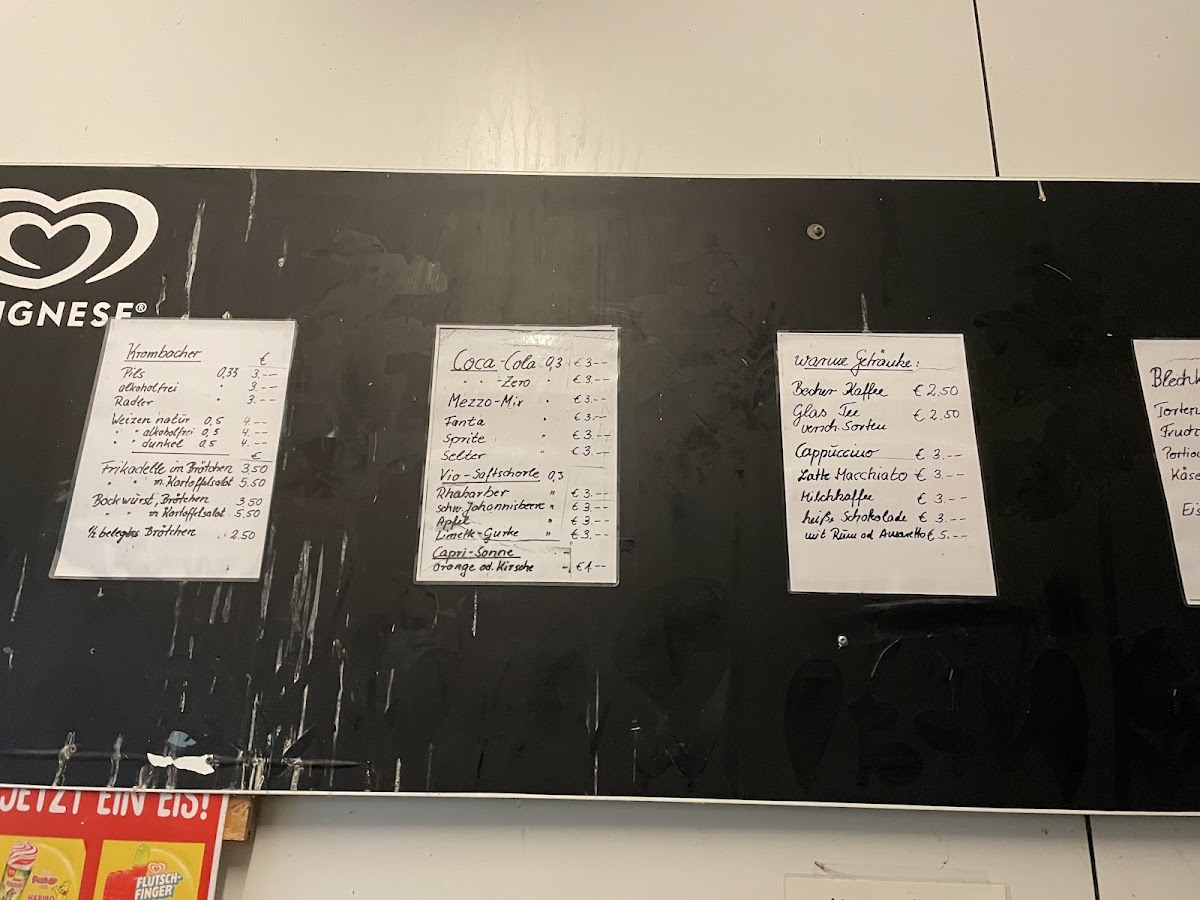 IGNESE®
Krombacher €
Pils 0,33 3.--
alkoholfrei " 3.--
Radler " 3.--
Weizen natür 0,5 4.--
" " alkoholfrei 0,5 4.--
" " dunkel 0,5 4.--
€
Frikadelle im Brötchen 3.50
" " m. Kartoffelsalat 5.50
Bockwurst, Brötchen 3.50
" " m Kartoffelsalat 5.50
1/2 belegtes Brötchen 2.50
Coca-Cola 0,3 € 3.--
" " -Zero " € 3.--
Mezzo-Mix " € 3.--
Fanta " € 3.--
Sprite " € 3.--
Selter " € 3.--
Vio-Saftschorle 0,3
Rhabarber " € 3.--
schw. Johannisbeere " € 3.--
Apfel " € 3.--
Limette-Gurke " € 3.--
Capri-Sonne
Orange od. Kirsche - € 1--
warme Getränke:
Becher Kaffee € 2.50
Glas Tee € 2.50
versch. Sorten
Cappuccino € 3.--
Latte Macchiato € 3.--
Milchkaffee € 3.--
heiße Schokolade € 3.--
mit Rum od Amaretto € 5.--
Blechk
Torten
Fruch
Portio
Käse
Eis
JETZT EIN EIS!
HARIBO
FLUTSCH-
FINGER